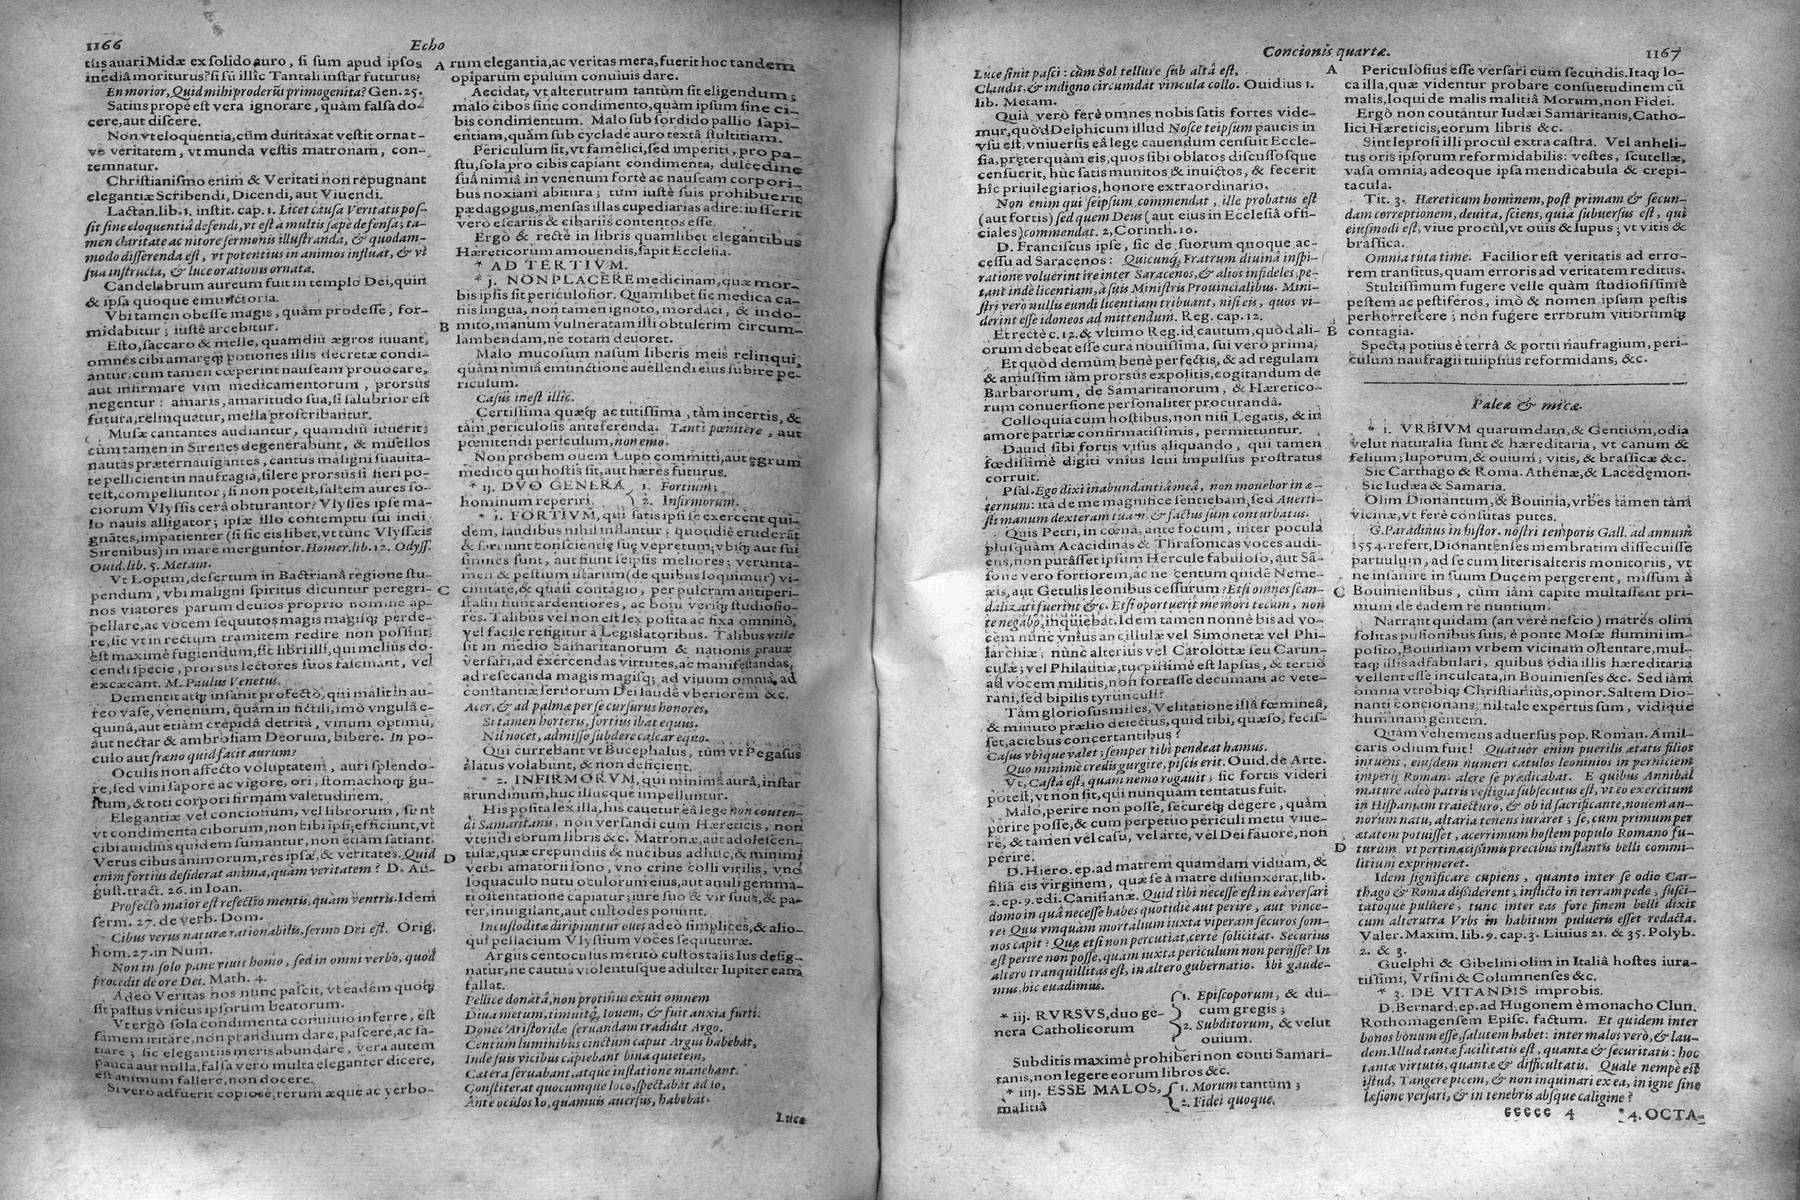 1166
Echo
tus auari Midæ ex solido auro, si sum apud ipsos
inediâ moriturus? si sū illic Tantali instar futurus?
En morior, Quid mihi proderūt primogenita? Gen. 25.
Satius propè est vera ignorare, quàm falsa do-
cere, aut discere.
Non vt eloquentia, cùm duntaxat vestit ornat-
ve veritatem, vt munda vestis matronam, con-
temnatur.
Christianismo enim & Veritati non repugnant
elegantiæ Scribendi, Dicendi, aut Viuendi.
Lactan. lib. 1. instit. cap. 1. Licet causa Veritatis pos-
sit sine eloquentiâ defendi, vt est à multis sæpè defensa; ta-
men claritate ac nitore sermonis illustranda, & quodam-
modo disserenda est, vt potentius in animos influat, & vi
sua instructa, & luce orationis ornata.
Candelabrum aureum fuit in templo Dei, quin
& ipsa quoque emunctoria.
Vbi tamen obesse magis, quàm prodesse, for-
midabitur; iustè arcebitur.
Esto, saccaro & melle, quamdiu ægros iuuant,
omnes cibi amaręq; potiones illis decretæ condi-
antur: cum tamen cœperint nauseam prouocare,
aut infirmare vim medicamentorum, prorsus
negentur: amaris, amaritudo sua, si salubrior est
futura, relinquatur, mella proscribantur.
Musæ cantantes audiantur, quamdiu iuuerit;
cùm tamen in Sirenes degenerabunt, & misellos
nautas præternauigantes, cantus maligni suauita-
te pellicient in naufragia, silere prorsus si fieri po-
test, compelluntor; si non potest, saltem aures so-
ciorum Vlyssis cerâ obturantor? Vlysses ipse ma-
lo nauis alligator; ipsæ illo contemptu sui indi
gnātes, impatienter (si sic eis libet, vt tunc Vlyssæis
Sirenibus) in mare merguntor. Homer. lib. 12. Odyss.
Ouid. lib. 5. Metam.
Vt Lopum, desertum in Bactrianâ regione stu-
pendum, vbi maligni spiritus dicuntur peregri-
nos viatores parum deuios proprio nomine ap-
pellare, ac vocem sequutos magis magisq; perde-
re, sic vt in rectum tramitem redire non possint;
est maximè fugiendum, sic libri illi, qui melius do-
cendi specie, prorsus lectores suos fascinant, vel
excæcant. M. Paulus Venetus.
Dementit atq; insanit profectò, qui malit in au-
reo vase, venenum, quàm in fictili, imò vngulâ e-
quinâ, aut etiàm crepidâ detritâ, vinum optimū,
aut nectar & ambrosiam Deorum, bibere. In po-
culo aut fræno quid facit aurum?
Oculis non affecto voluptatem, auri splendo-
re, sed vini sapore ac vigore, ori, stomachoq; gu-
stum, & toti corpori firmam valetudinem.
Elegantiæ vel concionum, vel librorum, sunt
vt condimenta ciborum, non cibi ipsi; efficiunt, vt
cibi auidius quidem sumantur, non etiam satiant.
Verus cibus animorum, res ipsæ, & veritates. Quid
enim fortius desiderat anima, quàm veritatem? D. Au-
gust. tract. 26. in Ioan.
Profectò maior est refectio mentis, quàm ventris. Idem
serm. 27. de verb. Dom.
Cibus verus naturæ rationabilis, sermo Dei est. Orig.
hom. 27. in Num.
Non in solo pane viuit homo, sed in omni verbo, quod
procedit de ore Dei. Math. 4.
Adeò Veritas nos nunc pascit, vt eadem quoq;
sit pastus vnicus ipsorum beatorum.
Vt ergò sola condimenta conuiuio inferre, est
famem irritare, non prandium dare, pascere, ac sa-
tiare; sic elegantiis meris abundare, vera autem
pauca aut nulla, falsa vero multa eleganter dicere,
est animum fallere, non docere.
Si verò adfuerit copiose, rerum æque ac verbo-
A
B
C
D
rum elegantia, ac veritas mera, fuerit hoc tandem
opiparum epulum conuiuis dare.
Ae cidat, vt alterutrum tantùm sit eligendum;
malo cibos sine condimento, quàm ipsum sine ci-
bis condimentum. Malo sub sordido pallio sapi-
entiam, quàm sub cyclade auro textâ stultitiam.
Periculum sit, vt famelici, sed imperiti, pro pa-
stu, sola pro cibis capiant condimenta, dulcedine
suâ nimiâ in venenum fortè ac nauseam corpori-
bus noxiam abitura; tùm iustè suis prohibuerit
pædagogus, mensas illas cupediarias adire: iusserit
verò escariis & cibariis contentos esse.
Ergò & rectè in libris quamlibet elegantibus
Hæreticorum amouendis, sapit Ecclesia.
* AD TERTIVM.
* j. NON PLACERE medicinam, quæ mor-
bis ipsis sit periculosior. Quamlibet sic medica ca-
nis lingua, non tamen ignoto, mordaci, & indo-
mito, manum vulneratam illi obtulerim circum-
lambendam, ne totam deuoret.
Malo mucosum nasum liberis meis relinqui,
quàm nimiâ emunctione auellendi eius subire pe-
riculum.
Casus inest illic.
Certissima quæq; ac tutissima, tàm incertis, &
tàm periculosis anteferenda. Tanti pœnitere, aut
pœnitendi periculum, non emo.
Non probem ouem Lupo committi, aut ęgrum
medico qui hostis sit, aut hæres futurus.
* ij. DVO GENERA
hominum reperiri.
1. Fortium;
2. Infirmorum.
* 1. FORTIVM, qui satis ipsi se exercent qui-
dem, laudibus nihil inflantur; quotidiè eruderāt
& sarriunt conscientię suę vepretum; vbiq; aut sui
similes sunt, aut fiunt seipsis meliores; verunta-
men & pestium istarum (de quibus loquimur) vi-
cinitate, & quasi contagio, per pulcram antiperi-
stasin fiunt ardentiores, ac boni veriq; studiosio-
res. Talibus vel non est lex posita ac fixa omninò,
vel facile refigitur à Legislatoribus. Talibus vtile
sit in medio Samaritanorum & nationis prauæ
versari, ad exercendas virtutes, ac manifestandas,
ad resecanda magis magisq; ad viuum omnia, ad
constantiæ seruorum Dei laudē vberiorem &c.
Acer, & ad palmæ per se cursurus honores,
Si tamen horteris, fortius ibat equus.
Nil nocet, admisso subdere calcar equo.
Qui currebant vt Bucephalus, tùm vt Pegasus
alatus volabunt, & non deficient.
* 2. INFIRMORVM, qui minimâ aurâ, instar
arundinum, huc illucque impelluntur.
His posita lex illa, his cauetur eâ lege non couten-
di Samaritanis, non versandi cum Hæreticis, non
vtendi eorum libris &c. Matronæ, aut adolescen-
tulæ, quæ crepundiis & nucibus adhuc, & minimi
verbi amatorii sono, vno crine colli virilis, vno
loquaculo nutu oculorum eius, aut anuli gemma-
ti ostentatione capiatur; iure suo & vir suus, & pa-
ter, inuigilant, aut custodes ponunt.
Incustoditæ diripiuntur oues; adeò simplices, & alio-
qui pellacium Vlyssium voces sequuturæ.
Argus centoculus meritò custos talis Ius desig-
natur, ne cautus violentusque adulter Iupiter eam
fallat.
Pellice donatâ, non protinus exuit omnem
Diua metum, timuitq; Iouem, & fuit anxia furti:
Donec Aristoridæ seruandam tradidit Argo.
Centum luminibus cinctum caput Argus habebat,
Inde suis vicibus capiebant bina quietem,
Cætera seruabant, atque in statione manebant.
Constiterat quocumque loco, spectabat ad Io,
Ante oculos Io, quamuis auersus, habebat.
Luce
Concionis quartæ.
1167
Luce sinit pasci: cùm Sol tellure sub altâ est,
Claudit, & indigno circumdat vincula collo. Ouidius 1.
lib. Metam.
Quià verò ferè omnes nobis satis fortes vide-
mur, quòd Delphicum illud Nosce teipsum paucis in
vsu est, vniuersis eâ lege cauendum censuit Eccle-
sia, pręterquàm eis, quos sibi oblatos discussosque
censuerit, hùc satis munitos & inuictos, & fecerit
hîc priuilegiarios, honore extraordinario.
Non enim qui seipsum commendat, ille probatus est
(aut fortis) sed quem Deus (aut eius in Ecclesiâ offi-
ciales) commendat. 2. Corinth. 10.
D. Franciscus ipse, sic de suorum quoque ac-
cessu ad Saracenos: Quicunq; Fratrum diuinâ inspi-
ratione voluerint ire inter Saracenos, & alios infideles, pe-
tant indè licentiam, à suis Ministris Prouincialibus. Mini-
stri verò nullis eundi licentiam tribuant, nisi eis, quos vi-
derint esse idoneos ad mittendum. Reg. cap. 12.
Et rectè c. 12. & vltimo Reg. id cautum, quòd ali-
orum debeat esse cura nouissima, sui verò prima;
Et quòd demùm benè perfectis, & ad regulam
& amussim iàm prorsus expolitis, cogitandum de
Barbarorum, de Samaritanorum, & Hæretico-
rum conuersione personaliter procurandâ.
Colloquia cum hostibus, non nisi Legatis, & in
amore patriæ confirmatissimis, permittuntur.
Dauid sibi fortis visus aliquando, qui tamen
fœdissimè digiti vnius leui impulsus prostratus
corruit.
Psal. Ego dixi in abundantiâ meâ, non mouebor in æ-
ternum: ità de me magnificè sentiebam, sed Auerti-
sti manum dexteram tuam, & factus sum conturbatus.
Quis Petri, in cœnâ, ante focum, inter pocula
plusquàm Acacidinas & Thrasonicas voces audi-
ens, non putâsset ipsum Hercule fabuloso, aut Sā-
sone vero fortiorem, ac ne centum quidē Neme-
æis, aut Getulis leonibus cessurum? Etsi omnes scan-
dalizati fuerint &c. Etsi oportuerit me mori tecum, non
te negabo, inquiebat. Idem tamen nonnè bis ad vo-
cem nunc vnius ancillulæ vel Simonetæ vel Phi-
larchiæ; nunc alterius vel Carolottæ seu Carun-
culæ; vel Philautiæ, turpissimè est lapsus, & tertiò
ad vocem militis, non fortasse decumani ac vete-
rani, sed bipilis tyrunculi?
Tàm gloriosus miles, Velitatione illâ fœmineâ,
& minuto prælio deiectus, quid tibi, quæso, fecis-
set, aciebus concertantibus?
Casus vbique valet; semper tibi pendeat hamus.
Quo minimè credis gurgite, piscis erit. Ouid. de Arte.
Vt, Casta est, quam nemo rogauit; sic fortis videri
potest, vt non sit, qui nunquam tentatus fuit.
Malo, perire non posse, securęq; degere, quàm
perire posse, & cum perpetuo periculi metu viue-
re, & tamen vel casu, vel arte, vel Dei fauore, non
perire.
D. Hiero. ep. ad matrem quamdam viduam, &
filiā eis virginem, quæ se à matre disiunxerat, lib.
2. ep. 9. edi. Canisianæ. Quid tibi necesse est in ea versari
domo in quâ necesse habes quotidiè aut perire, aut vince-
re? Quis vmquam mortalium iuxta viperam securos som-
nos capit? Quæ etsi non percutiat, certè solicitat. Securius
est perire non posse, quàm iuxta periculum non perijsse? In
altero tranquillitas est, in altero gubernatio. Ibi gaude-
mus, hic euadimus.
* iij. RVRSVS, duo ge-
nera Catholicorum
1. Episcoporum, & du-
cum gregis;
2. Subditorum, & velut
ouium.
Subditis maximè prohiberi non couti Samari-
tanis, non legere eorum libros &c.
* iiij. ESSE MALOS,
malitiâ
1. Morum tantùm;
2. Fidei quoque.
A
B
C
D
Periculosius esse versari cùm secundis. Itaq; lo-
ca illa, quæ videntur probare consuetudinem cū
malis, loqui de malis malitiâ Morum, non Fidei.
Ergò non coutāntur Iudæi Samaritanis, Catho-
lici Hæreticis, eorum libris &c.
Sint leprosi illi procùl extra castra. Vel anheli-
tus oris ipsorum reformidabilis: vestes, scutellæ,
vasa omnia; adeoque ipsa mendicabula & crepi-
tacula.
Tit. 3. Hæreticum hominem, post primam & secun-
dam correptionem, deuita, sciens, quià subuersus est, qui
eiusmodi est, viue procùl, vt ouis & lupus; vt vitis &
brassica.
Omnia tuta time. Facilior est veritatis ad erro-
rem transitus, quam erroris ad veritatem reditus.
Stultissimum fugere velle quàm studiosissimè
pestem ac pestiferos, imò & nomen ipsum pestis
perhorrescere; non fugere errorum vitiorumq;
contagia.
Specta potius è terrâ & portu naufragium, peri-
culum naufragii tui ipsius reformidans, &c.
Paleæ & micæ.
* i. VRBIVM quarumdam, & Gentium, odia
velut naturalia sunt & hæreditaria, vt canum &
felium; luporum, & ouium; vitis, & brassicæ &c.
Sic Carthago & Roma. Athenæ, & Lacedęmon.
Sic Iudæa & Samaria.
Olim Dionantum, & Bouinia, vrbes tàmen tàm
vicinæ, vt ferè consutas putes.
G. Paradinus in histor. nostri temporis Gall. ad annum
1554. refert, Dionantenses membratim dissecuisse
paruulum, ad se cum literis alteris monitoriis, vt
ne insanire in suum Ducem pergerent, missum à
Bouinensibus, cùm iàm capite multassent pri-
mum de eâdem re nuntium.
Narrant quidam (an verè nescio) matres olim
solitas pusionibus suis, è ponte Mosæ flumini im-
posito, Bouinam vrbem vicinam ostentare, mul-
taq; illis adfabulari, quibus odia illis hæreditaria
vellent esse inculcata, in Bouinienses &c. Sed iàm
omnia vtrobiq; Christianius, opinor. Saltem Dio-
nanti concionans, nil tale expertus sum, vidique
humanam gentem.
Quàm vehemens aduersus pop. Roman. Amil-
caris odium fuit! Quatuor enim puerilis ætatis filios
intuens, eiusdem numeri catulos leoninios in perniciem
imperij Roman. alere se prædicabat. E quibus Annibal
mature adeò patris vestigia subsecutus est, vt eo exercitum
in Hispaniam traiecturo, & ob id sacrificante, nouem an-
norum natu, altaria tenens iuraret; se, cùm primùm per
ætatem potuisset, acerrimum hostem populo Romano fu-
turum. vt pertinacissimis precibus instantis belli commi-
litium exprimeret.
Idem significare cupiens, quanto inter se odio Car-
thago & Roma dissiderent; inflicto in terram pede, susci-
tatoque puluere, tunc inter eas fore finem belli dixit
cum alterutra Vrbs in habitum pulueris esset redacta.
Valer. Maxim. lib. 9. cap. 3. Liuius 21. & 35. Polyb.
2. & 3.
Guelphi & Gibelini olim in Italiâ hostes iura-
tissimi, Vrsini & Columnenses &c.
* 3. DE VITANDIS improbis.
D. Bernard. ep. ad Hugonem è monacho Clun.
Rothomagensem Episc. factum. Et quidem inter
bonos bonum esse, salutem habet: inter malos verò, & lau-
dem. Illud tantæ facilitatis est, quantæ & securitatis: hoc
tantæ virtutis, quantæ & difficultatis. Quale nempè est
istud, Tangere picem, & non inquinari ex ea, in igne sine
læsione versari, & in tenebris absque caligine?
ggggg 4
* 4. OCTA-